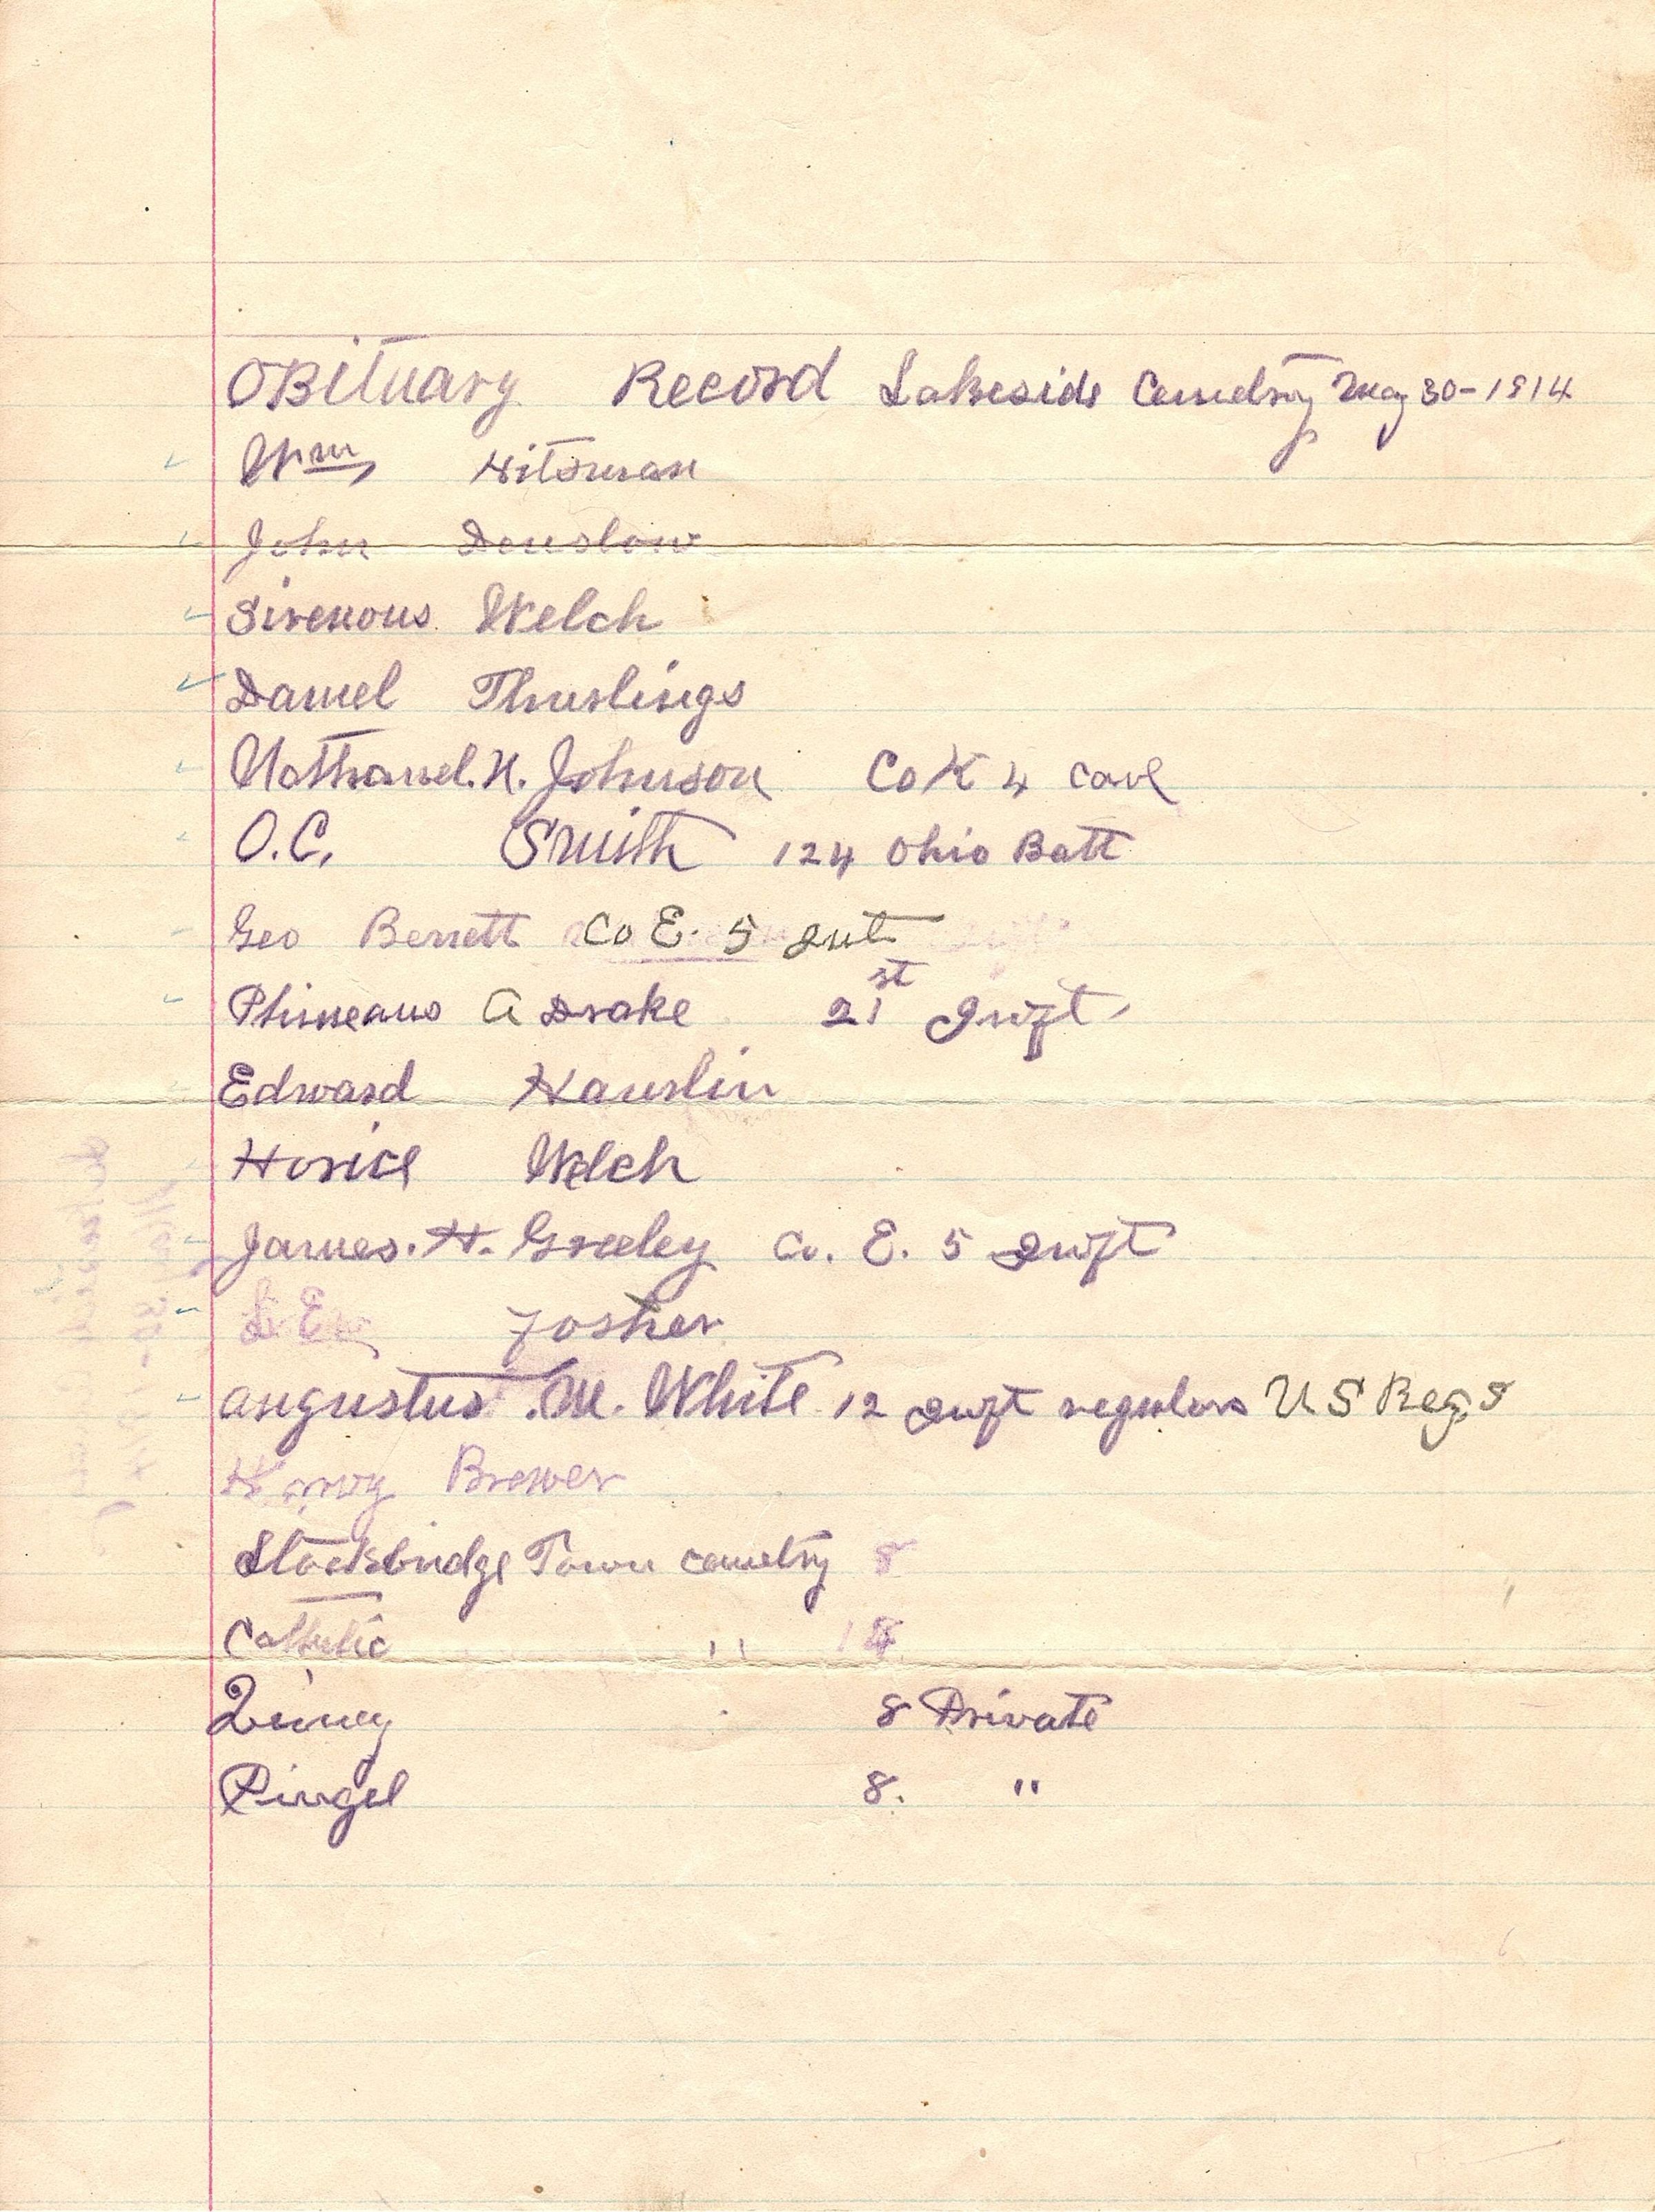 OBituary Record Lakeside Cemetry May 30-1914
Wm Hitsman
John Denslow
Sirenous Welch
Daniel Thurlings
Nathanel. H. Johnson Co K 4 Cavl
O.C. Smith 124 Ohio Batt
Geo Berrett Co E. 5 Inft
Phineaus A Drake 21st Inft.
Edward Hauslin
Horice Welch
James. H. Greeley Co. E. 5 Infft
Fosher
Augustus. M. White 12 Inft regulars US Regs
Brewer
Stocksbridge Town cemetry 8
Catholic " 
Quiney 8 Private
Pingel 8. "